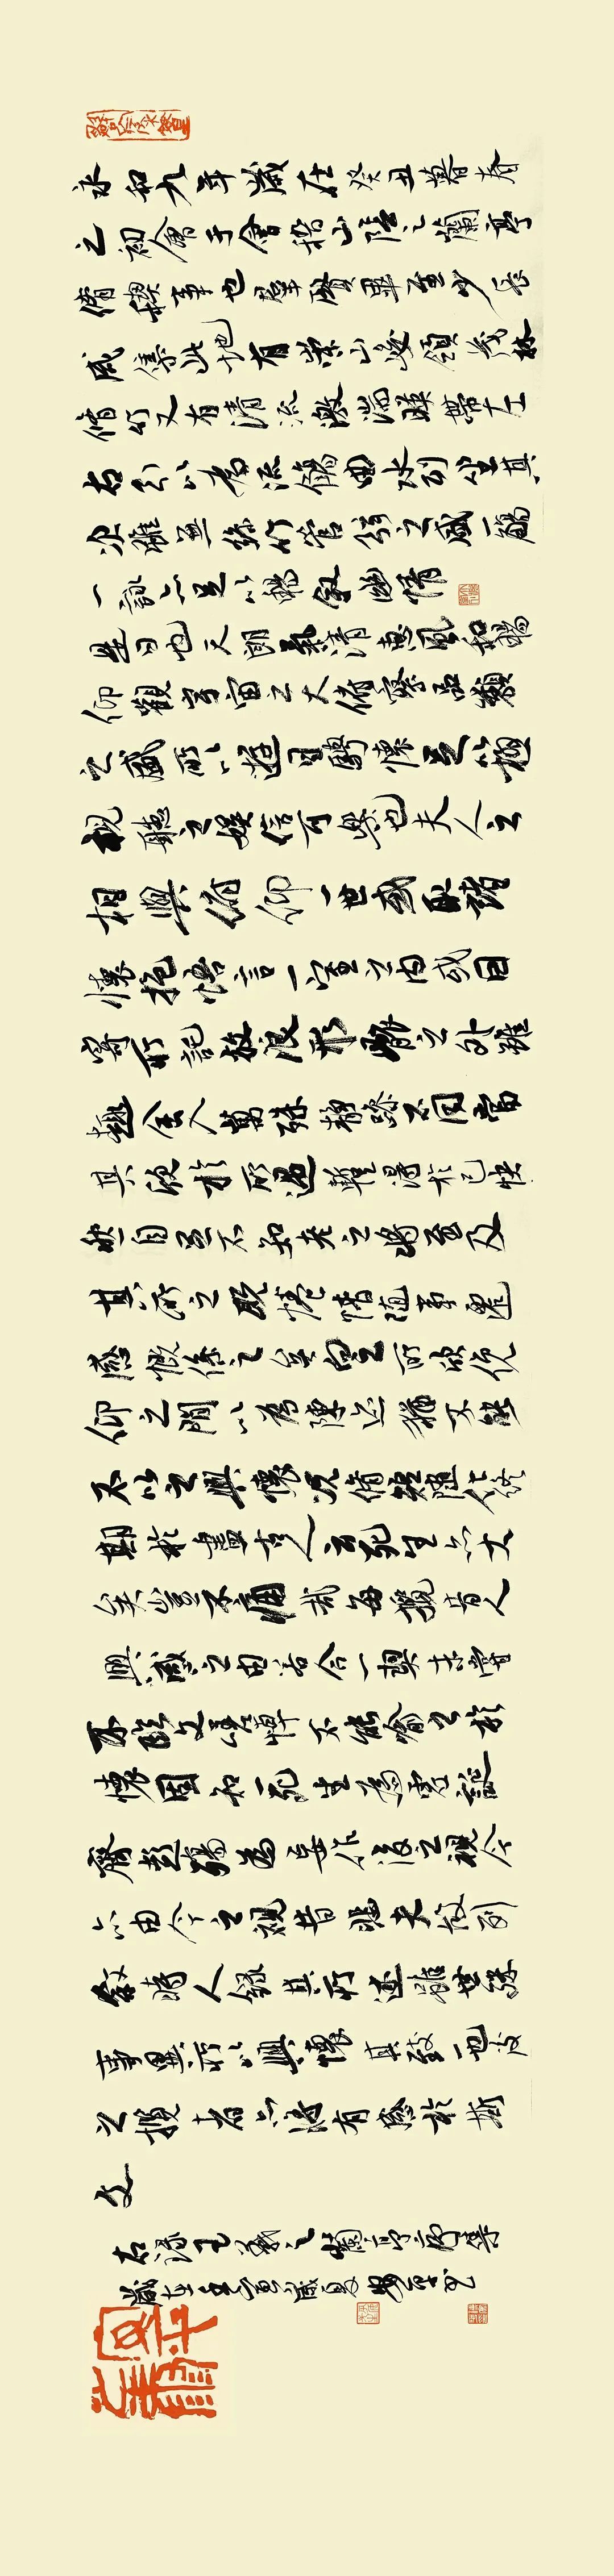 永和九年歲在癸丑暮春
之初會于會稽山陰之蘭亭
脩禊事也羣賢畢至少長
咸集此地有崇山峻領茂林
脩竹又有清流激湍暎帶左
右引以為流觴曲水列坐其
次雖無絲竹管弦之盛一觴
一詠亦足以暢叙幽情
是日也天朗氣清惠風和暢
仰觀宇宙之大俯察品類
之盛所以遊目騁懷足以極
視聽之娛信可樂也夫人之
相與俯仰一世或取諸
懷抱悟言一室之內或因
寄所託放浪形骸之外雖
趣舍人萬殊静躁不同當
其欣於所遇暫得於己快
然自足不知老之將至及
其所之既惓情隨事遷
感慨係之矣向之所欣俛
仰之間以為陳迹猶不能
不以之興懷況脩短隨化終
期於盡古人云死生亦大
矣豈不痛哉每攬昔人
興感之由若合一契未嘗
不臨文嗟悼不能喻之於
懷固知一死生為虛誕
齊彭殤為妄作後之視今
亦由今之視昔悲夫故列
叙時人錄其所述雖世殊
事異所以興懷其致一也後
之攬者亦將有感於斯
文
右錄王羲之蘭亭序
歲在